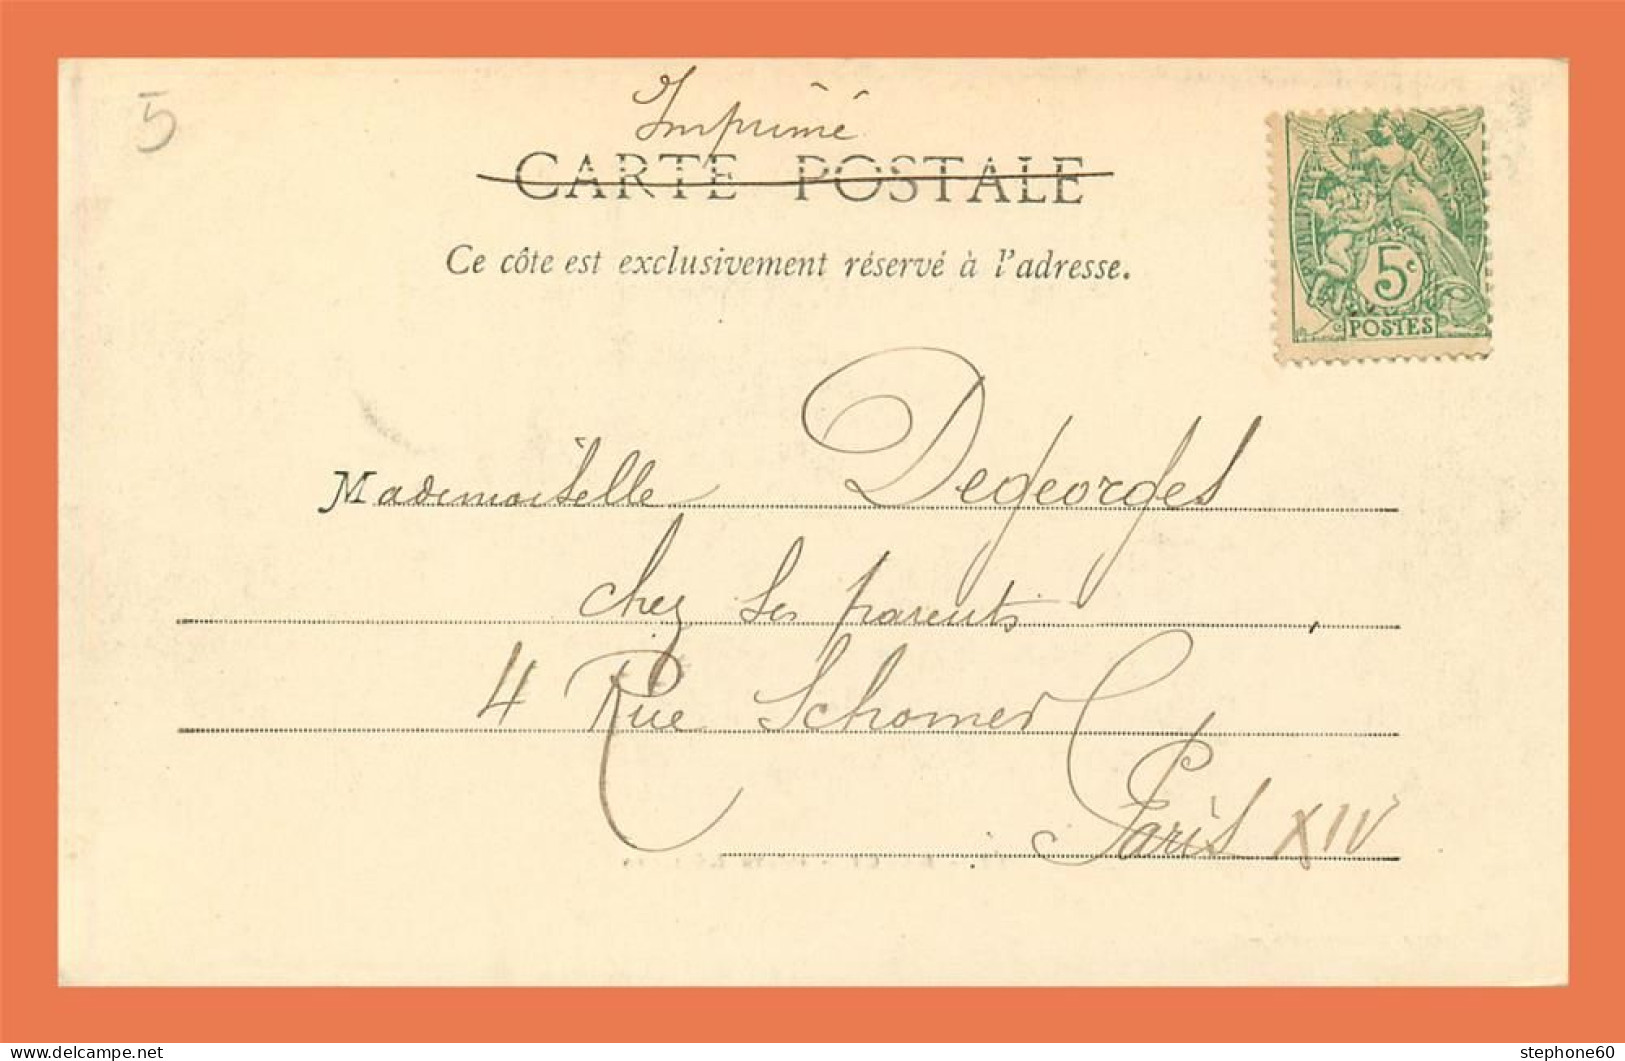 5
Imprimé
CARTE POSTALE
Ce côté est exclusivement réservé à l'adresse.
RÉPUBLIQUE FRANÇAISE
5c
POSTES
Mademoiselle Degeorges
chez ses parents
4 Rue Schomer
Paris XIV
stephone60
delcampe.net